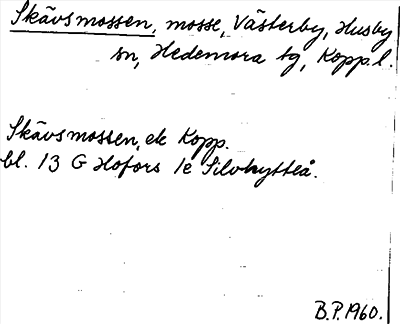 Skävsmossen, mosse, Västerby, Husby
sn, Hedemora tg, Kopp.l.
Skävsmossen, ek Kopp.
bl. 13 G Hofors 1e Silvhytteå.
B.P. 1960.